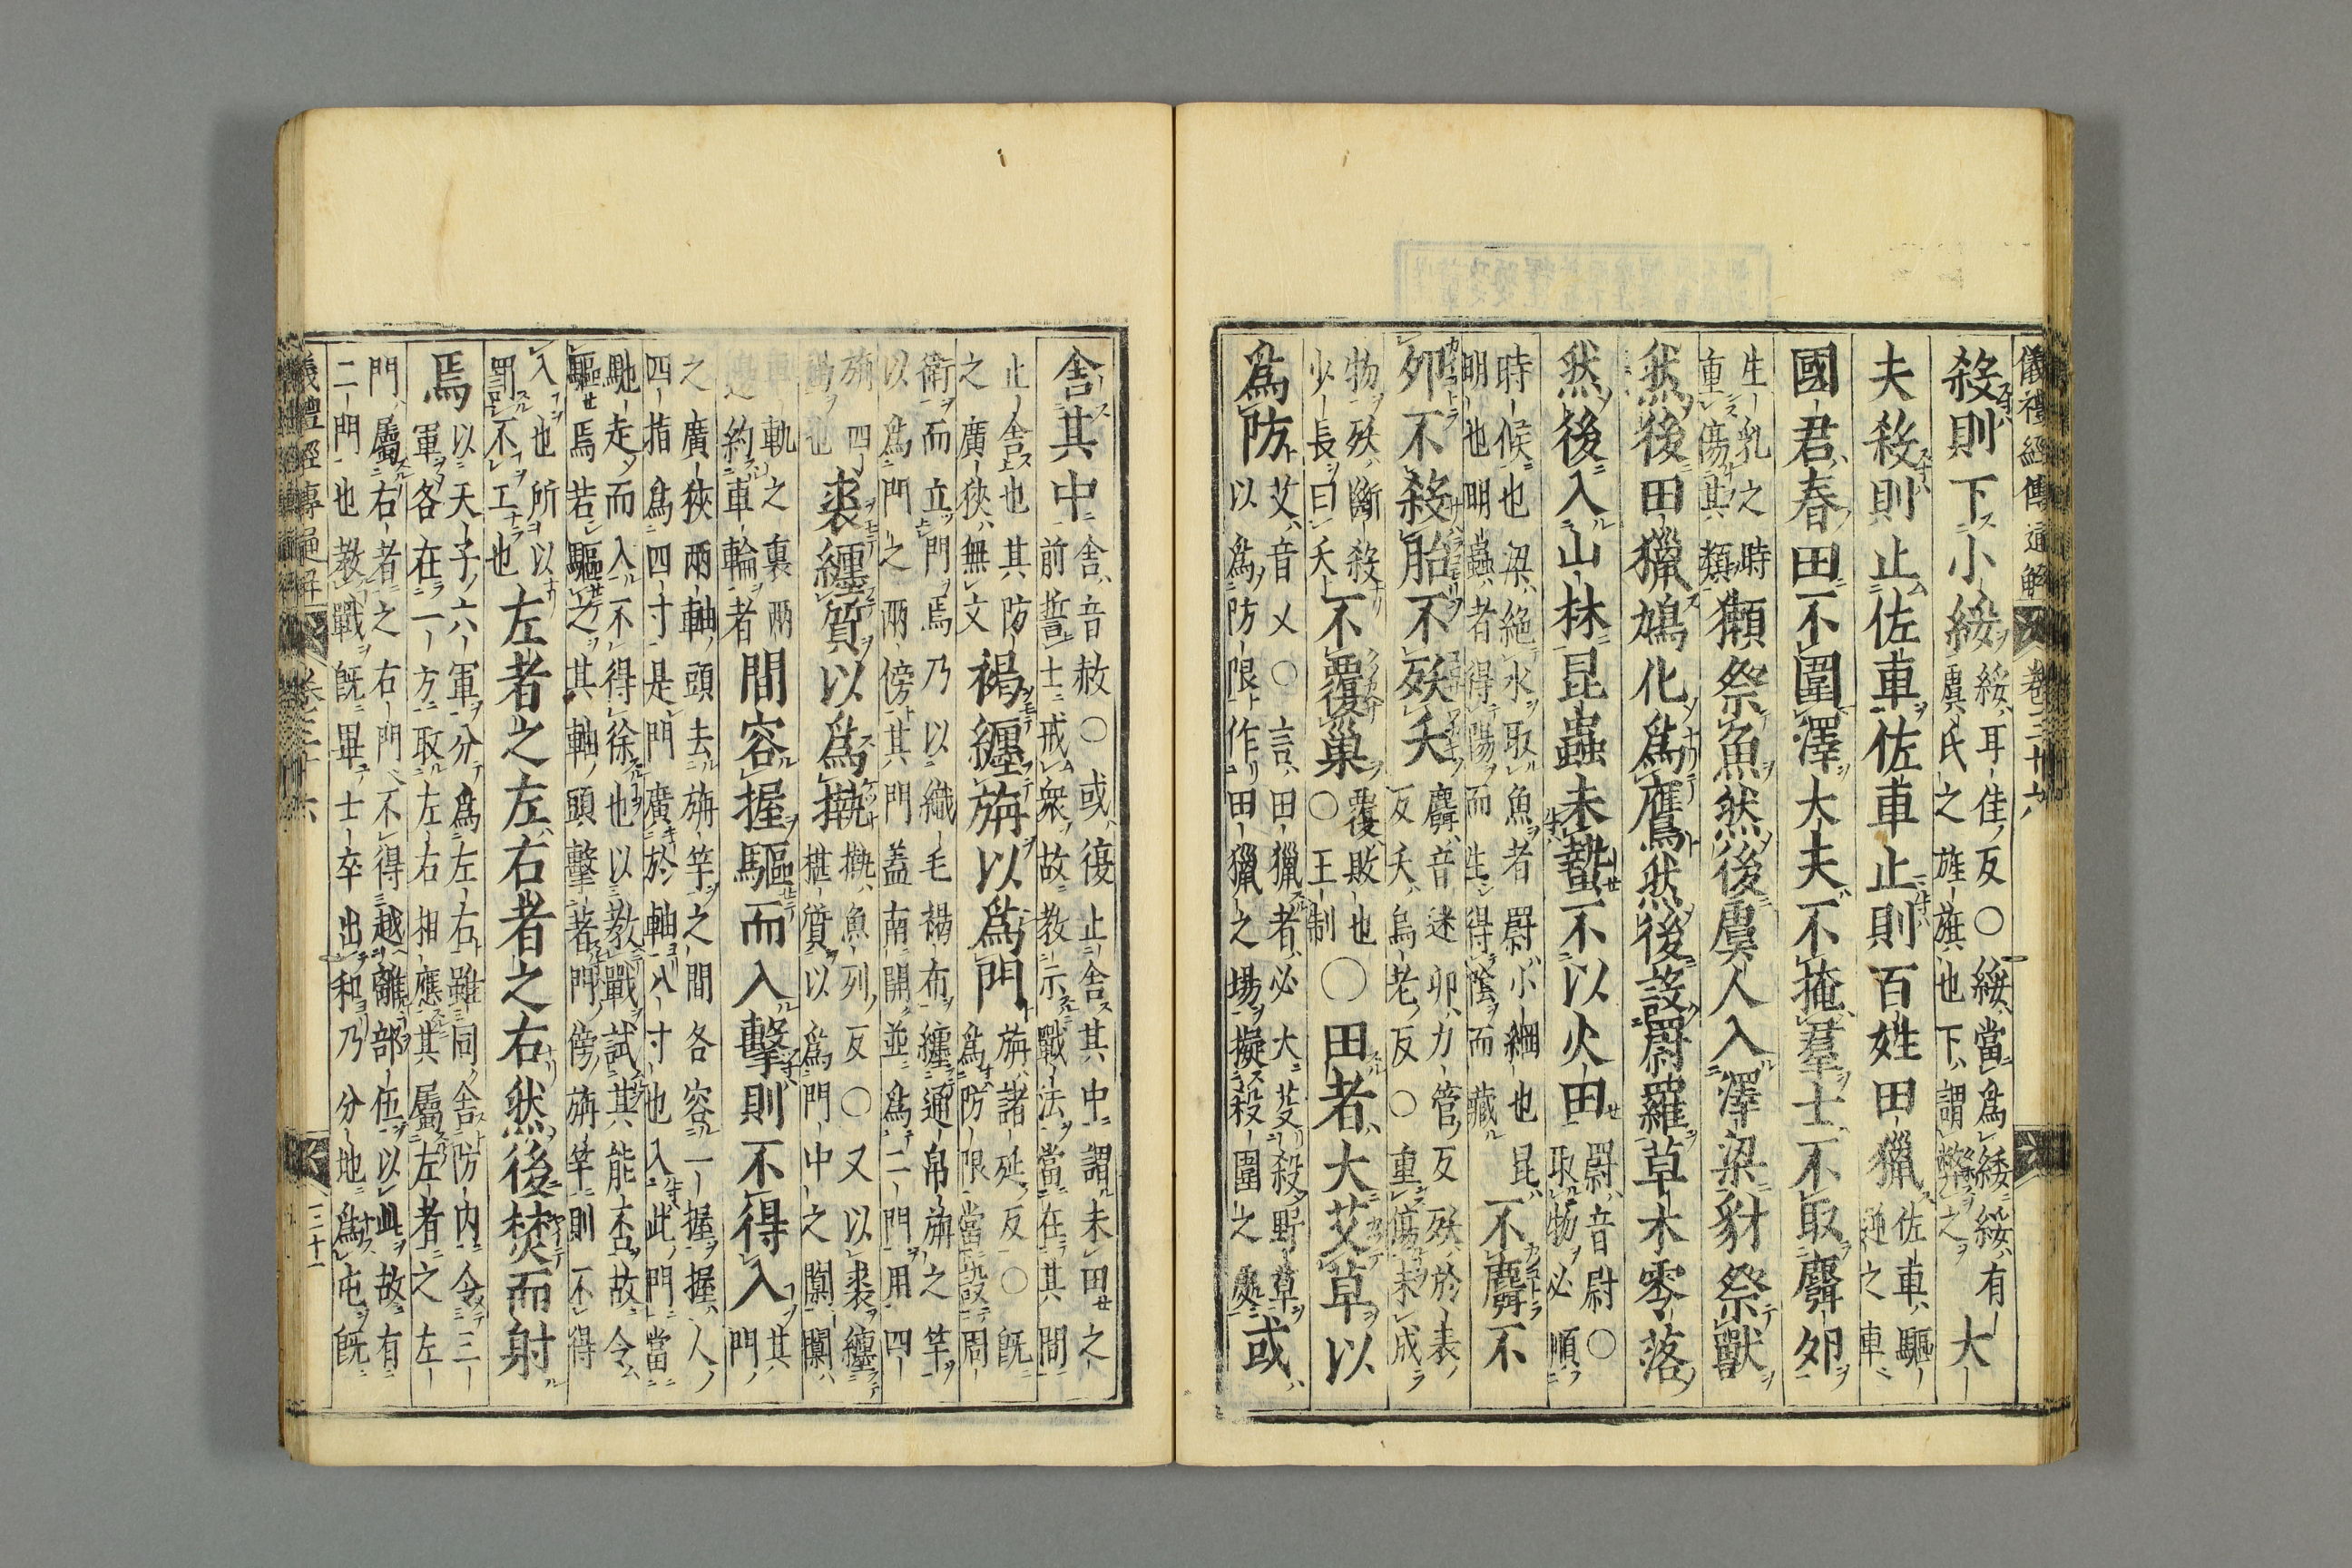 儀禮經傳通解 卷三十六
殺則下小綏綏耳佳反○綏當爲緌緌有
虞氏之旌旗也下謂弊之大
夫殺則止佐車佐車止則百姓田獵佐車驅
逆之車
國君春田不圍澤大夫不掩羣士不取麛卵
生乳之時
重傷其類獺祭魚然後虞人入澤梁豺祭獸
然後田獵鳩化爲鷹然後設罻羅草木零落
然後入山林昆蟲未蟄不以火田罻音尉○
取物必順
時候也梁絕水取魚者罻小綱也昆
明也明蟲者得陽而生得陰而藏不麛不
卵不殺胎不殀夭麛音迷卵力管反殀於表
反夭烏老反○重傷未成
物殀斷殺
少長曰夭不覆巢○覆敗也
王制○田者大艾草以
爲防艾音乂○言田獵者必大芟殺野草
以爲防限作田獵之場擬殺圍之處或
舍其中舍音赦○或復止舍其中謂未田之
前誓士戒衆故教示戰法當在其間
止舍也其防
之廣狹無文褐纏旃以爲門旃諸延反○旣
爲防限當設周
衛而立門焉乃以織毛褐布纏通帛旃之竿
以爲門之兩傍其門蓋南開並爲二門用四
旃四
也裘纏質以爲㮈㮈魚列反○又以裘纏
椹質以爲門中之闑闑
軌之裏兩
約車輪者間容握驅而入擊則不得入其
門
之廣狹兩軸頭去旃竿之間各容一握握人
四指爲四寸是門廣於軸八寸也入此門當
馳走而入不得徐也以教戰試其能否故令
驅焉若驅之其軸頭擊著門傍旃竿則不得
入也所以
罰不工也左者之左右者之右然後焚而射
焉以天子六軍分爲左右雖同舍防内令三
軍各在一方取左右相應其屬左者之左
門屬右者之右門不得越離部伍以此故有
二門也教戰旣畢士卒出和乃分地爲屯旣
儀禮經傳通解 卷三十六 三十一